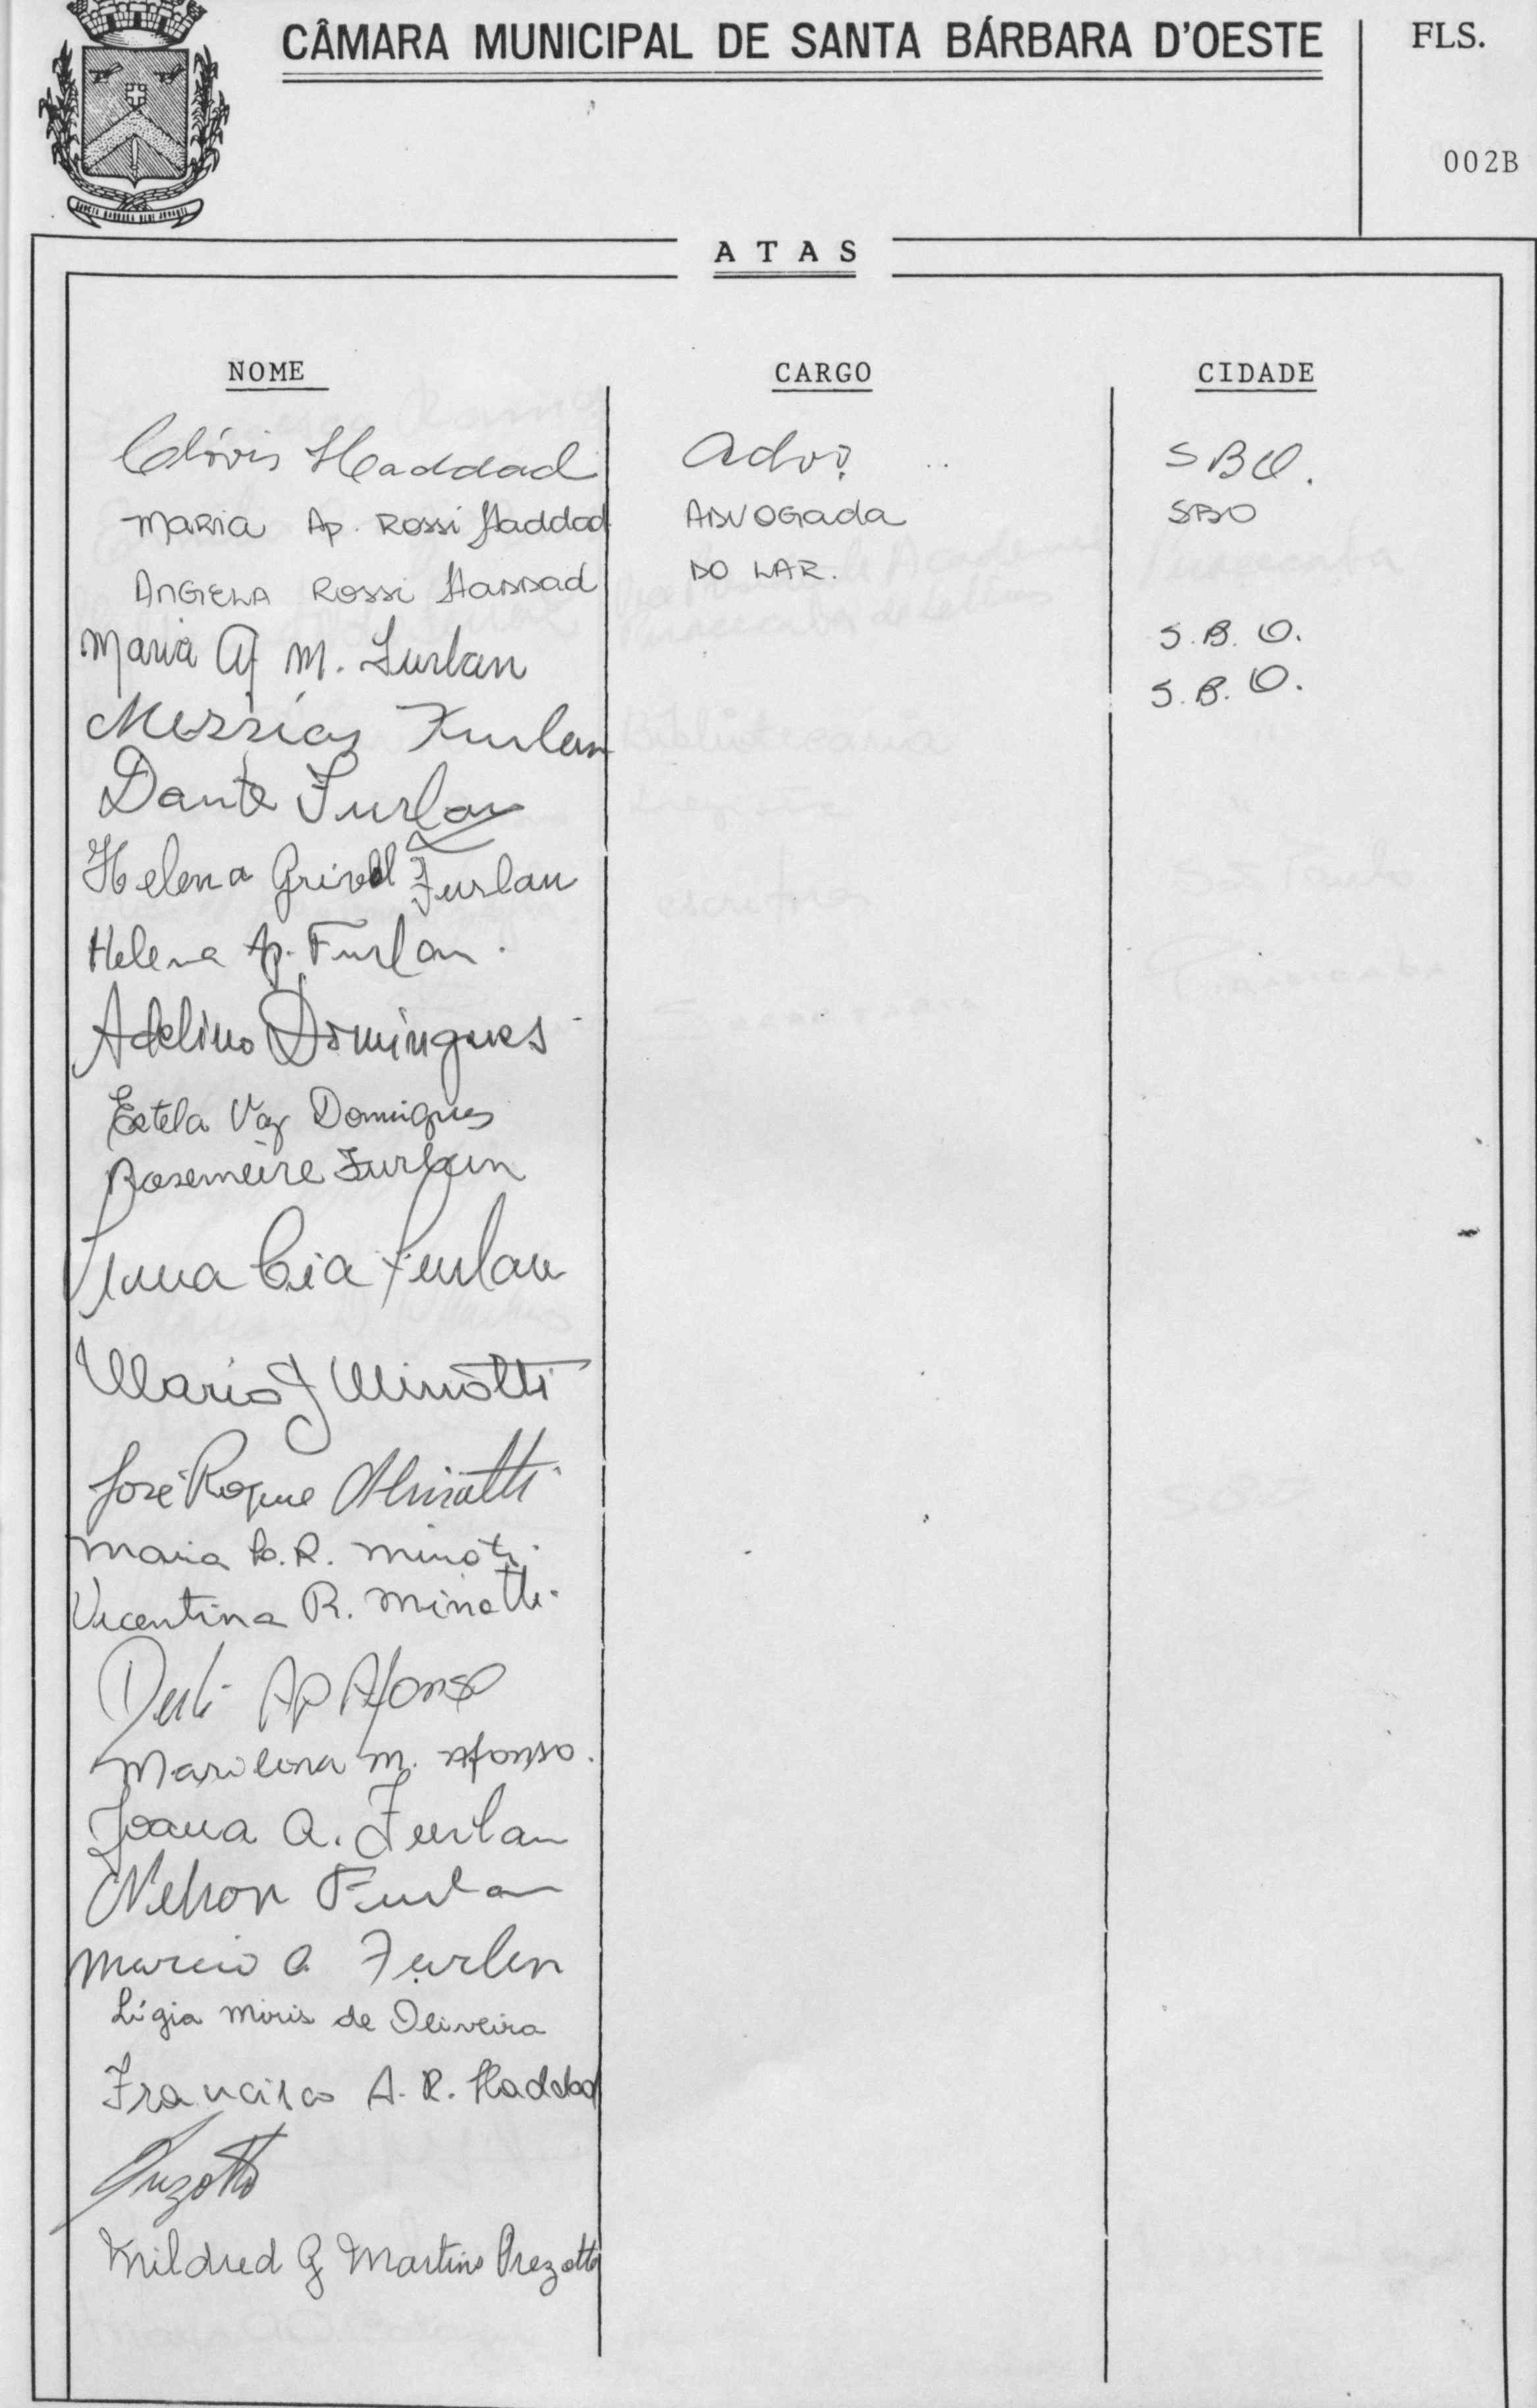 CÂMARA MUNICIPAL DE SANTA BÁRBARA D'OESTE
FLS.
002B
ATAS
NOME CARGO CIDADE
Clóvis Haddad Advº SBO.
Maria Ap. Rossi Haddad ADVOGada SBO
Angela Rossi Haddad DO LAR.
Maria Ap M. Furlan S.B.O.
Messias Furlan S.B.O.
Dante Furlan
Helena Furlan
Helena Ap. Furlan.
Adelino Domingues
Estela Vaz Domigues
Rosemeire Furlan
Cia Furlan
Mario J Minotti
José Roque Minotti
Maria R. Minoti
Vicentina R. Minotti
Ap Afonso
Marilena M. Afonso.
Joana A. Furlan
Nelson Furlan
Marcio A Furlan
Lígia Miris de Oliveira
Francisco A. R. Haddad
Mildred G Martins Prezotto